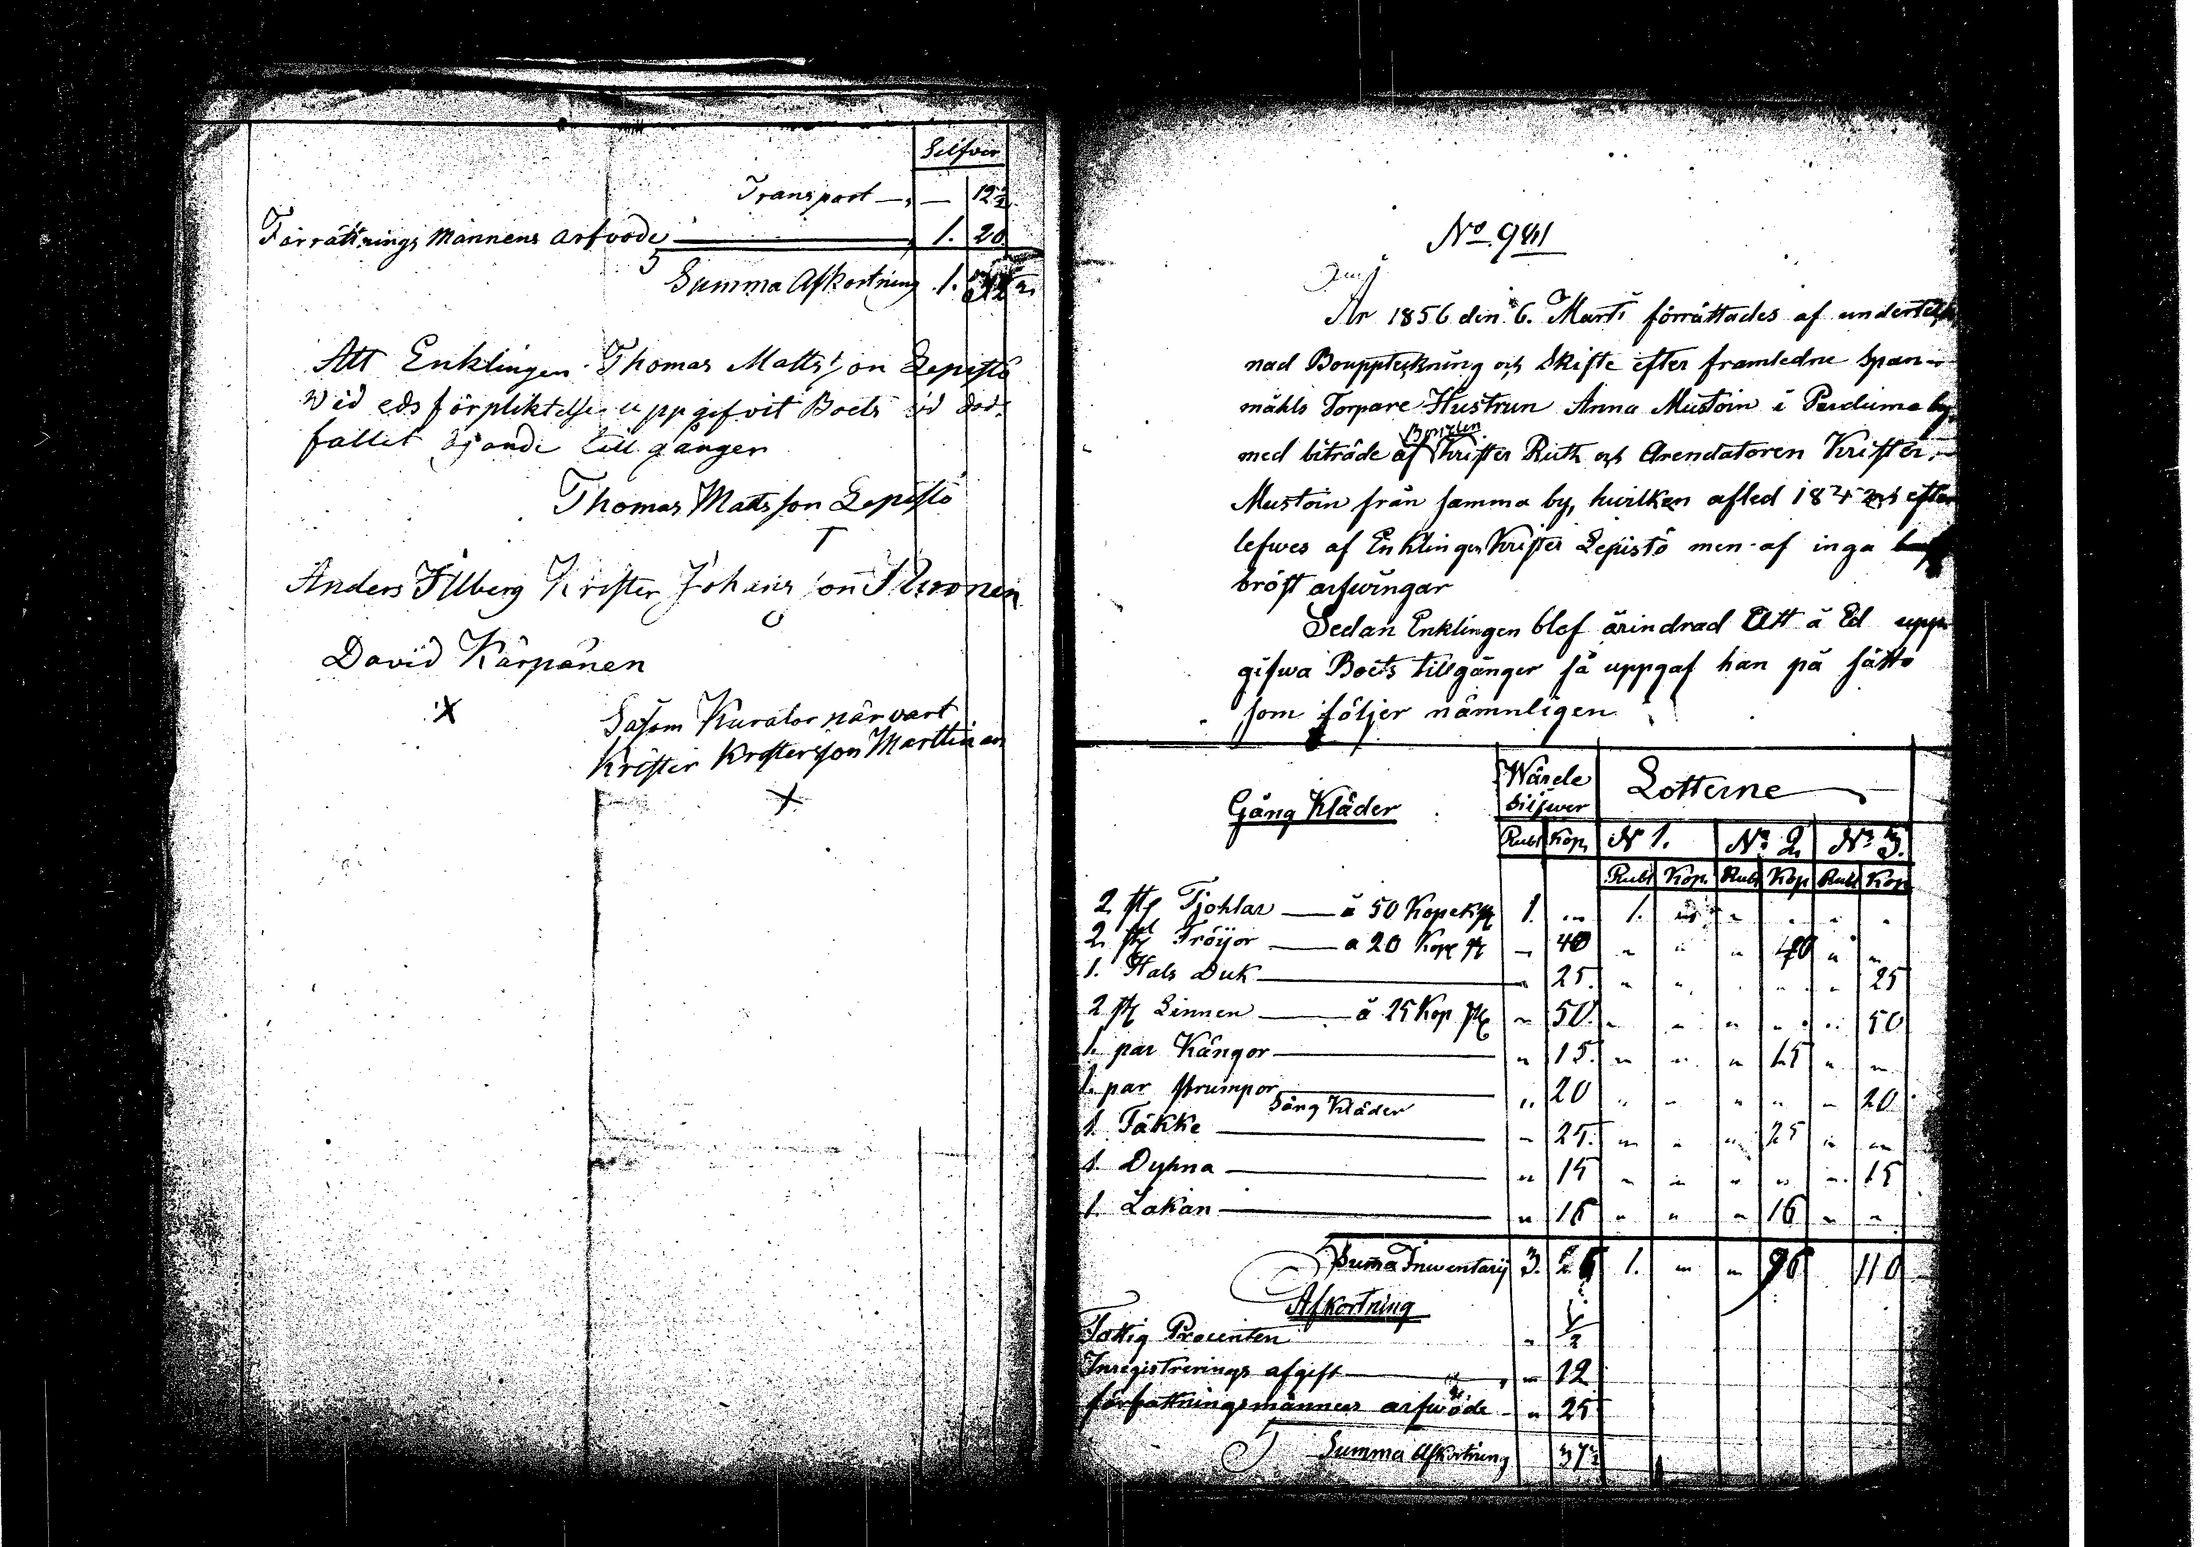 Silfver
Transport — 12½
Förrättnings Männens arfvode 1. 20
Summa Afkortning 1.
Att Enklingen Thomas Matts son Lepistö
Wid eds förpliktelse uppgifvit Boets vid död.
fallet ägande till gånger
Thomas Mattsson Lepistö
Anders Illberg Krister Johans son
David Kärpänen
X
Såsom Kurator närvart
Krister Kristersson Marttinen
X
No. 941
År 1856 den 6. Marti förrättades af underteck
nad Bouppteckning och Skifte efter framledne Span-
måhls Torpare Hustrun Anna Mustoin i Purduma by,
Bonden
med biträde af Krister Ruth och Arendatoren Krister
Mustoin från samma by, hvilken afled och efter
lefwes af Enklingen Krister Lepistö men af inga
bröst arfwingar
Sedan Enklingen blef ärindrad Att å Ed upp
gifwa Boets tillgånger så uppgaf han på sätt
som följer nämnligen
Gång Kläder Wärde Silfwer Lotterne
Rubl Kop. N 1. No 2. No 3.
Rubl Kop. Rubl Kop Rubl Kop
2 st Tjohlar — à 50 Kopek st 1. „ 1. „ „ „ „ „
2. st Tröijor — a 20 Kope st „ 40 „ „ „ 40 „ „
1. Hals Duk — „ 25. „ „ „ „ „ 25
2 st Linnen — à 25 Kop st „ 50. „ „ „ „ „ 50
1. par Kängor — „ 15. „ „ „ 15 „ „
1. par strumpor — „ 20 „ „ „ „ „ 20
Säng Kläder
1. Täkke — „ 25. „ „ „ 25 „ „
1. Dyhna — „ 15 „ „ „ „ „ 15
1. Lakan — „ 16 „ „ „ 16 „ „
Suma Inventarij 3. 26 1. „ „ 96 110
Afkortning
Fattig Procenten „ ½
Inregistrerings afgift — „ 12
förrattningsmännens arfwode „ 25
Summa Afkortning 37½